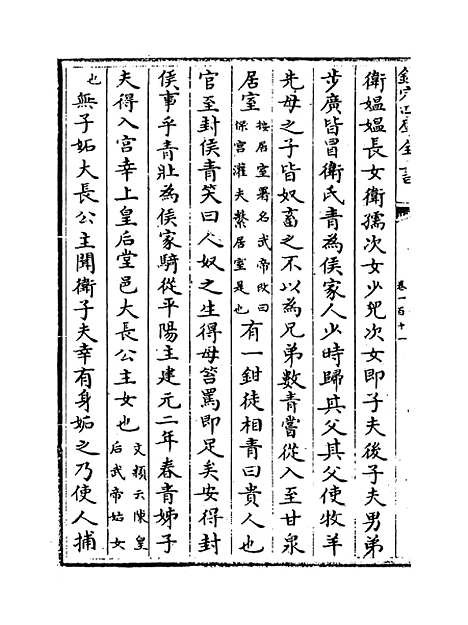 欽定四庫全書
卷一百十一
衛媪媪長女衛孺次女少兒次女即子夫後子夫男弟
步廣皆冒衛氏青為侯家人少時歸其父其父使牧羊
先母之子皆奴畜之不以為兄弟數青嘗從入至甘泉
居室按居室署名武帝改曰保宫灌夫繫居室是也有一鉗徒相青曰貴人也
官至封侯青笑曰人奴之生得母笞罵即足矣安得封
侯事乎青壯為侯家騎從平陽主建元二年春青姊子
夫得入宫幸上皇后堂邑大長公主女也文頴云陳皇后武帝姑女
也無子妬大長公主聞衛子夫幸有身妬之乃使人捕